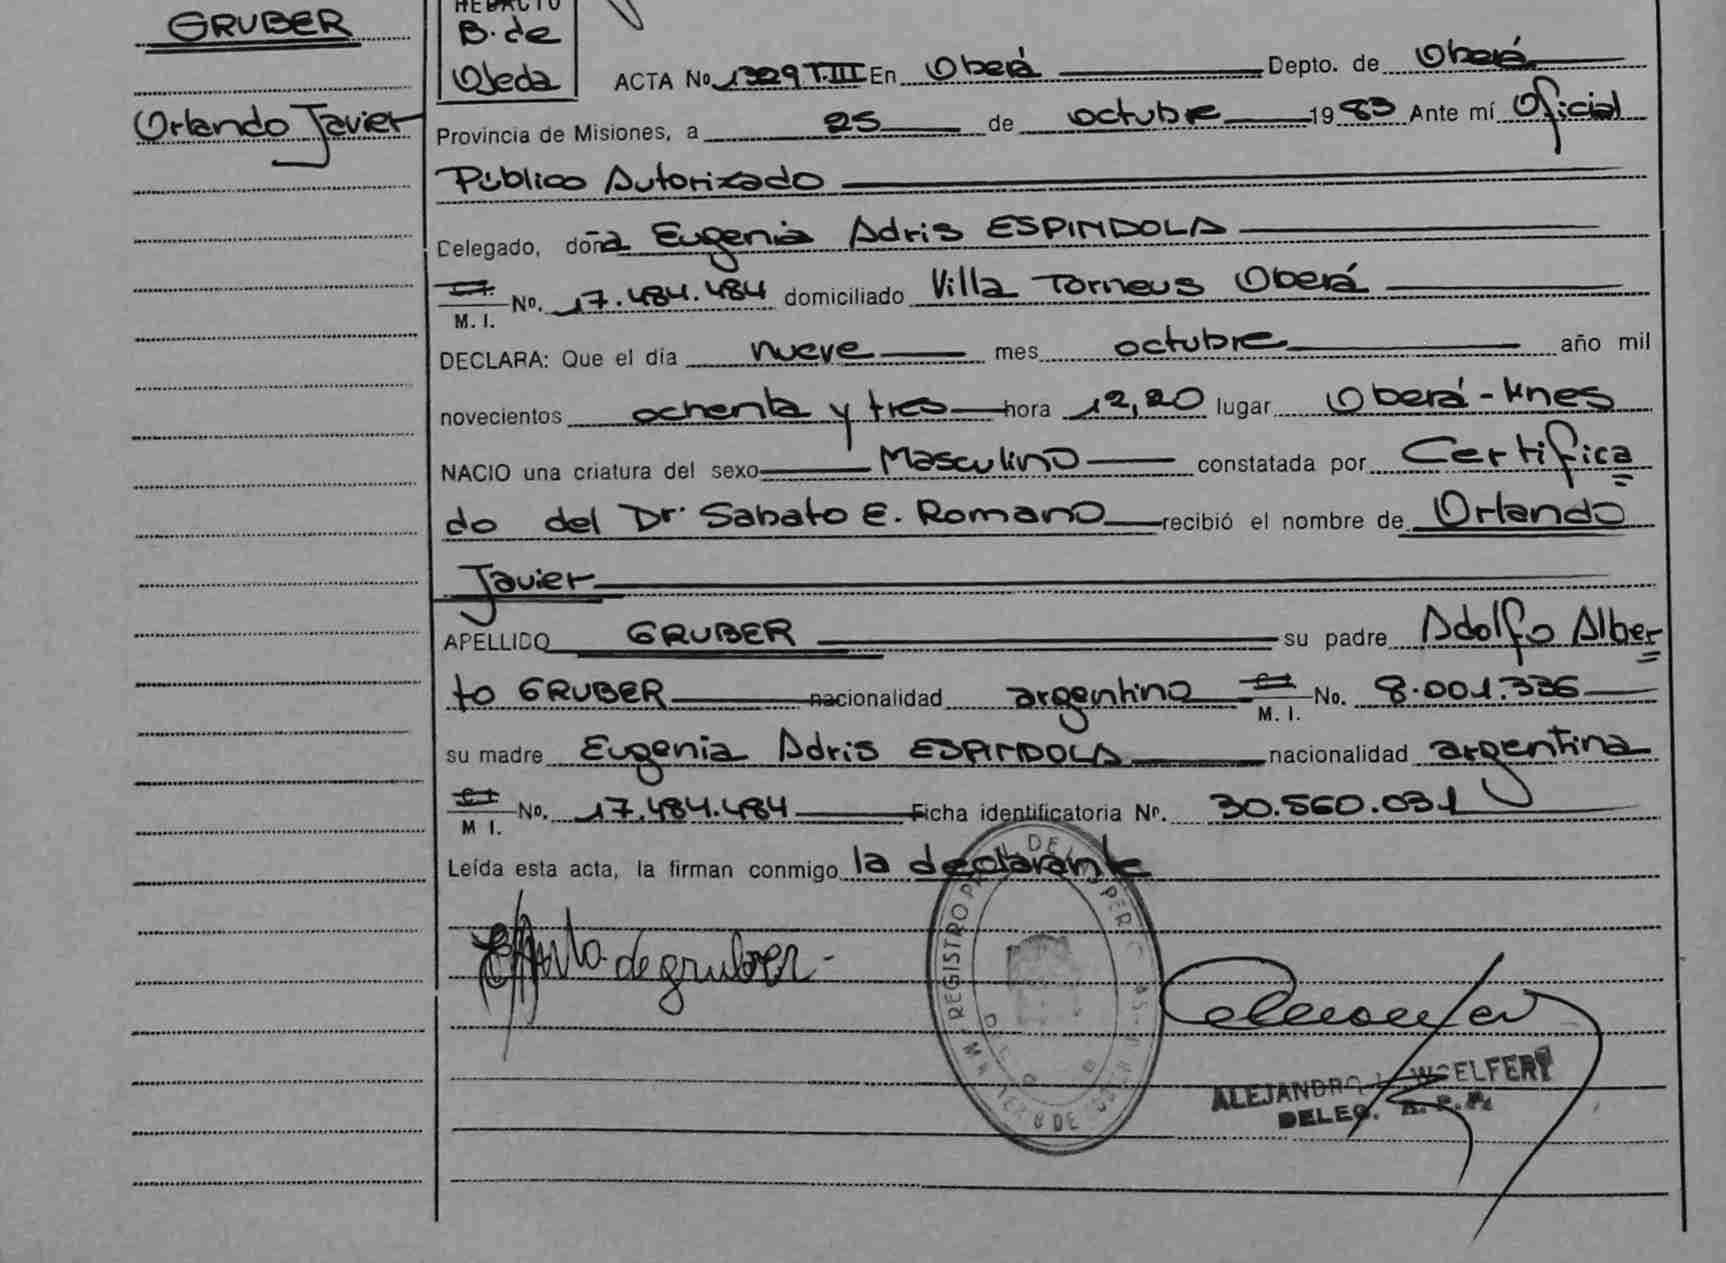 GRUBER
Orlando Javier
REDACTO
B. de
Ojeda
ACTA No 1329 T.III En Oberá Depto. de Oberá
Provincia de Misiones, a 25 de octubre 1983 Ante mí Oficial
Público Autorizado
Delegado, doña Eugenia Adris ESPINDOLA
C.I.
M. I. No. 17.484.484 domiciliado Villa Torneus Oberá
DECLARA: Que el día nueve mes octubre año mil
novecientos ochenta y tres hora 12,20 lugar Oberá - Mnes
NACIO una criatura del sexo Masculino constatada por Certifica
do del Dr. Sabato E. Romano recibió el nombre de Orlando
Javier
APELLIDO GRUBER su padre Adolfo Alber
to GRUBER nacionalidad argentino C.I. M. I. No. 8.001.336
su madre Eugenia Adris ESPINDOLA nacionalidad argentina
C.I. M I. No. 17.484.484 Ficha identificatoria Nº. 30.560.031
Leída esta acta, la firman conmigo la declarante
de gruber
REGISTRO DE
ALEJANDRO WOELFERT
DELEG. R. P. P.